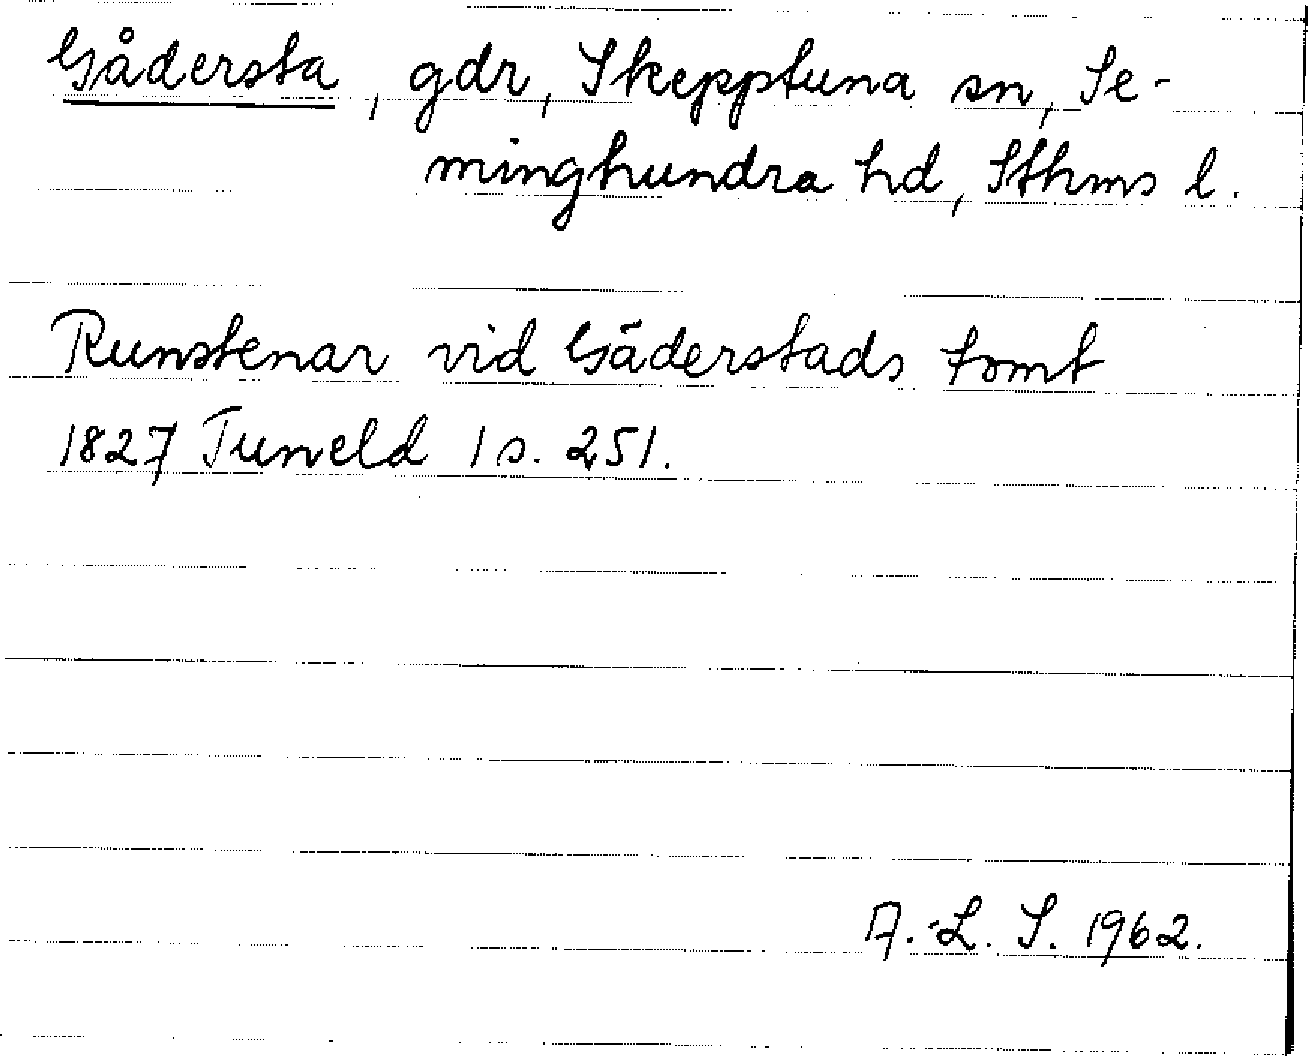 Gådersta, gdr, Skepptuna sn, Se-
minghundra hd, Sthms l.
Runstenar vid Gäderstads tomt
1827 Tuneld 1 s. 251.
A.-L. S. 1962.